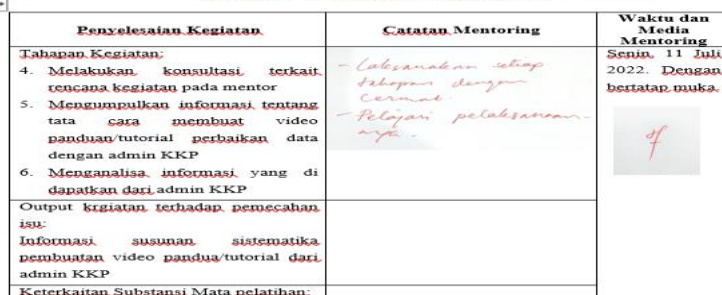 Penyelesaian Kegiatan
Catatan Mentoring
Waktu dan
Media
Mentoring
Tahapan Kegiatan:
4. Melakukan konsultasi terkait
rencana kegiatan pada mentor
5. Mengumpulkan informasi tentang
tata cara membuat video
panduan/tutorial perbaikan data
dengan admin KKP
6. Menganalisa informasi yang di
dapatkan dari admin KKP
- Laksanakan setiap
tahapan dengan
cermat.
- Pelajari pelaksanaan-
nya.
Senin, 11 Juli
2022. Dengan
bertatap muka
Output krgiatan terhadap pemecahan
isu:
Informasi susunan sistematika
pembuatan video pandua/tutorial dari
admin KKP
Keterkaitan Substansi Mata pelatihan: